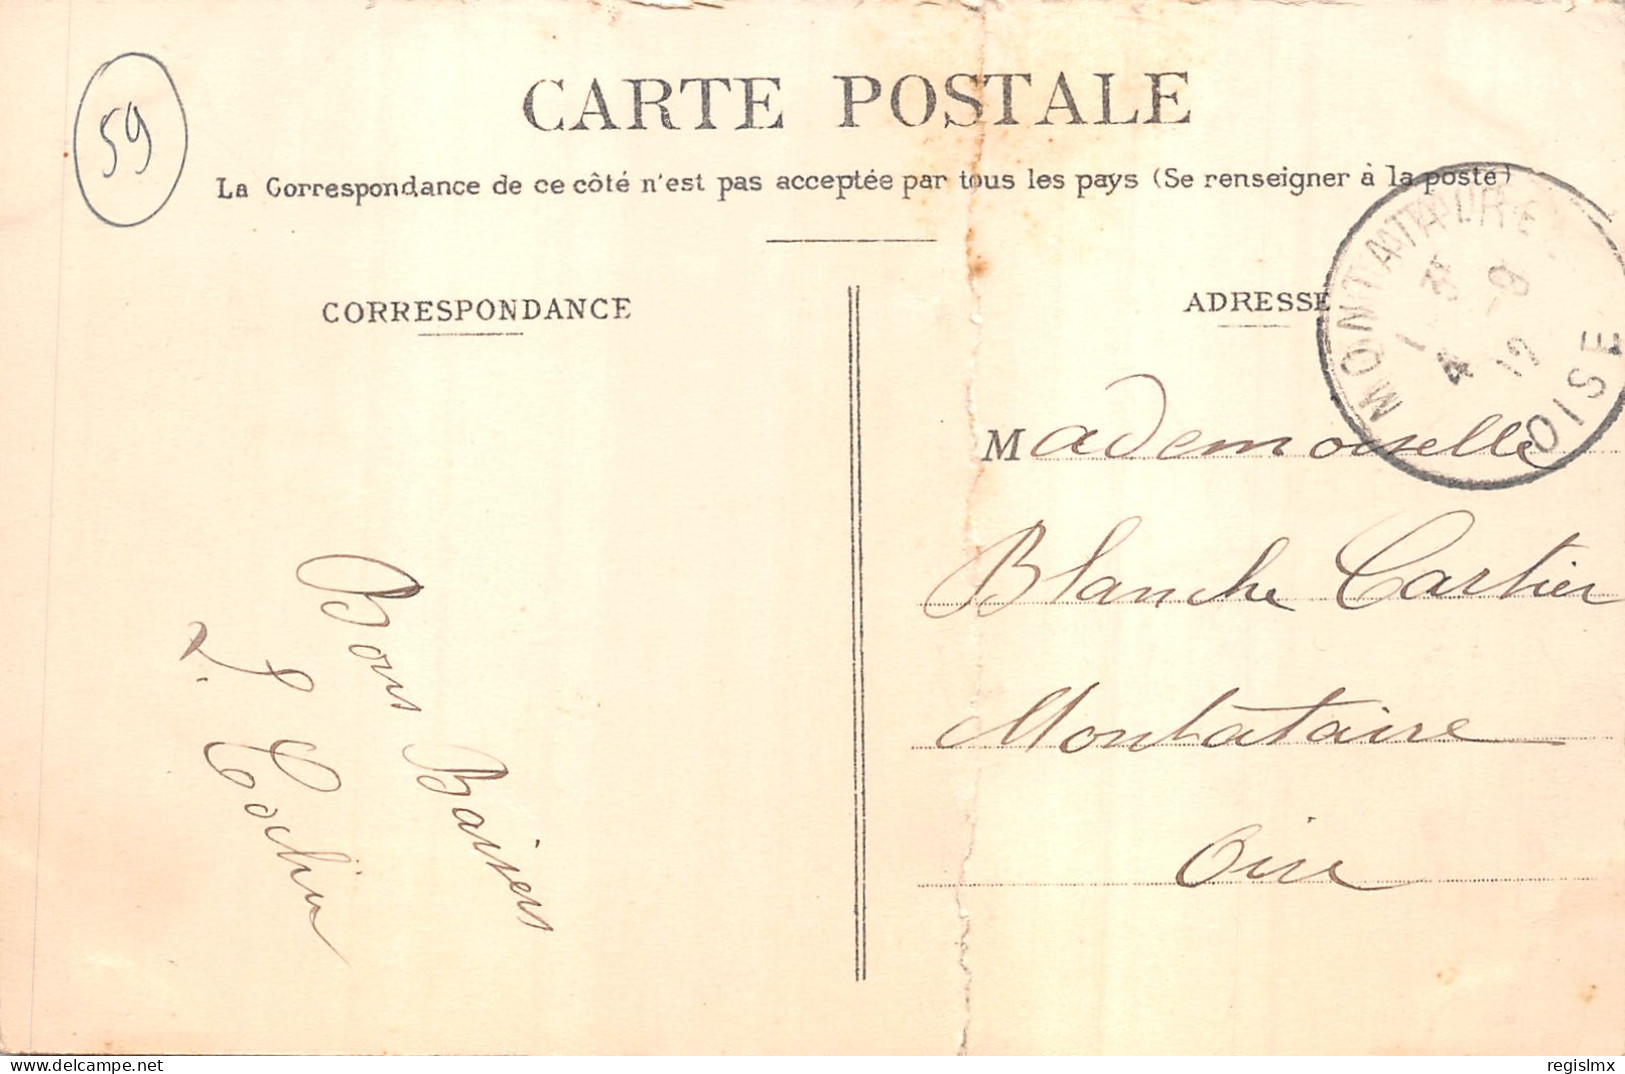 59
CARTE POSTALE
La Correspondance de ce côté n'est pas acceptée par tous les pays (Se renseigner à la poste)
CORRESPONDANCE
ADRESSE
MONTATAIRE
OISE
Mademoiselle
Blanche Cartier
Montataire
Oise
Bons Baisers
L. Cochin
regislmx